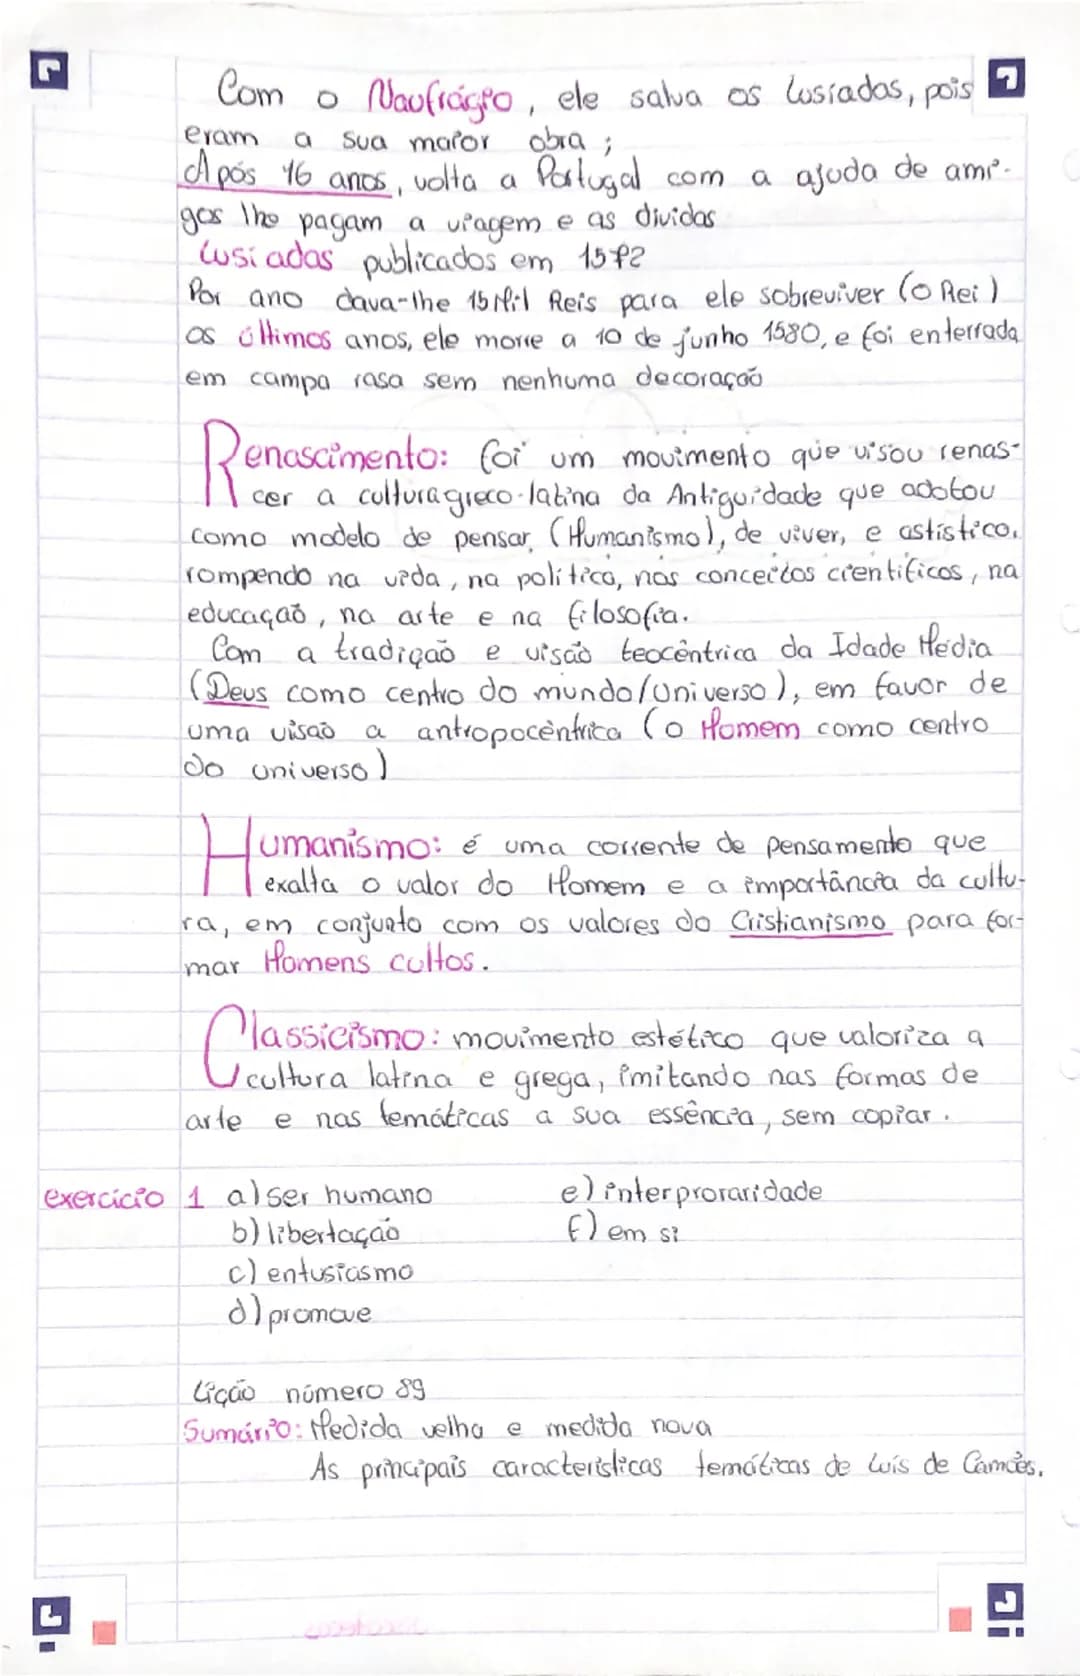 Com o Naufrágio, ele salva os Lusíadas, pois
eram a sua maior obra;
Após 16 anos, volta a Portugal com a ajuda de ami-
gos lhe pagam a viagem e as dividas
Lusiadas publicados em 1572
Por ano dava-lhe 15 Mil Reis para ele sobreviver (o Rei)
os últimos anos, ele morre a 10 de junho 1580, e foi enterrada
em campa rasa sem nenhuma decoração
Renascimento: foi um movimento que visou renas-
cer a cultura greco-latina da Antiguidade que adotou
como modelo de pensar, (Humanismo), de viver, e astístico,
rompendo na vida, na política, nos conceitos cientificos, na
educação, na arte e na filosofia.
Com a tradição e visão teocêntrica da Idade Média
(Deus como centro do mundo/Universo), em favor de
uma visão a antropocêntrica (o Homem como centro
do universo)
Humanismo: é uma corrente de pensamento que
exalta o valor do Homem e a importância da cultu-
ra, em conjunto com os valores do Cristianismo para for-
mar Homens cultos.
Classicismo: movimento estético que valoriza a
cultura latina e grega, imitando nas formas de
arte e nas temáticas a sua essência, sem copiar.
exercício 1 a) ser humano e) interproraridade
b) libertação f) em si
c) entusiasmo
d) promove
Lição número 89
Sumário: Medida velha e medida nova
As principais características temáticas de Luís de Camões.